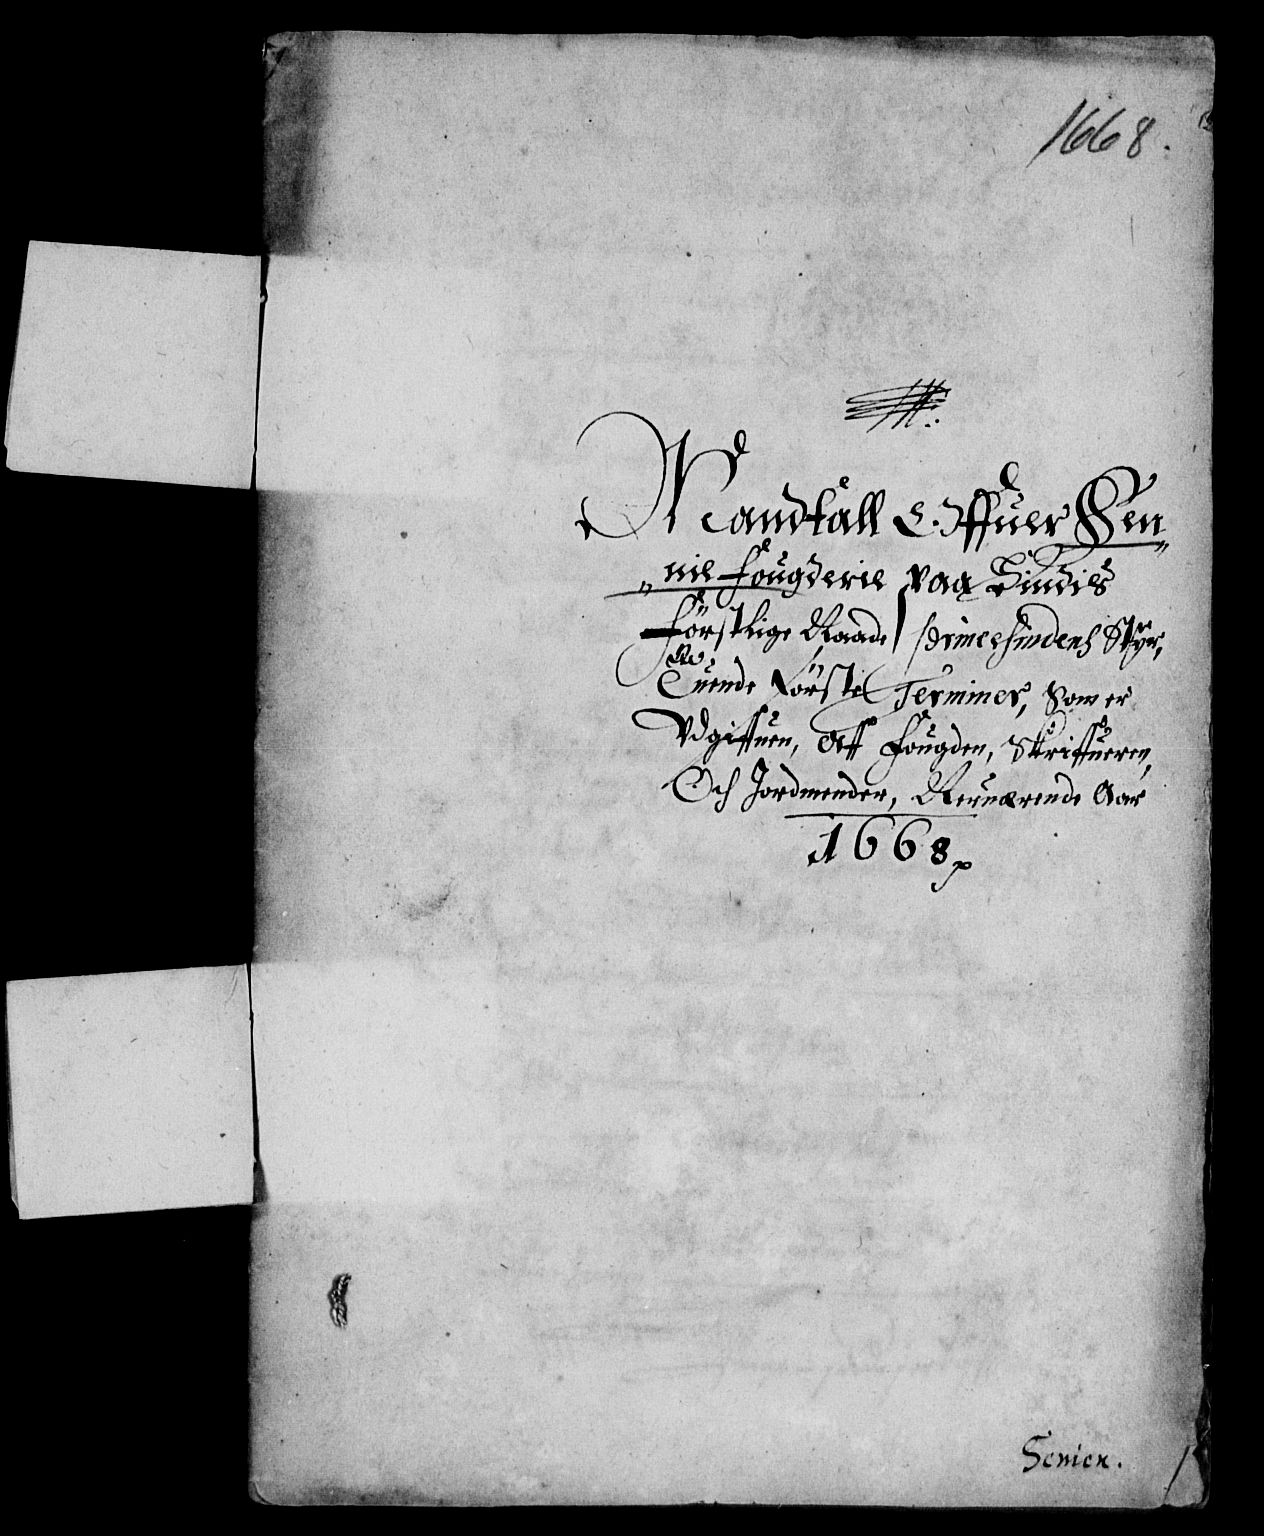 1668.
Mandtall Offuer Sen„
„nie fougderie paa Hindis
förstlige Naade Princessindens Styr,
Tuende Förste Terminer, Som er
Vdgiffuen, Aff Fougden, Skriffueren,
Och Jordmender, Nerværende Aar
1668
Senien.